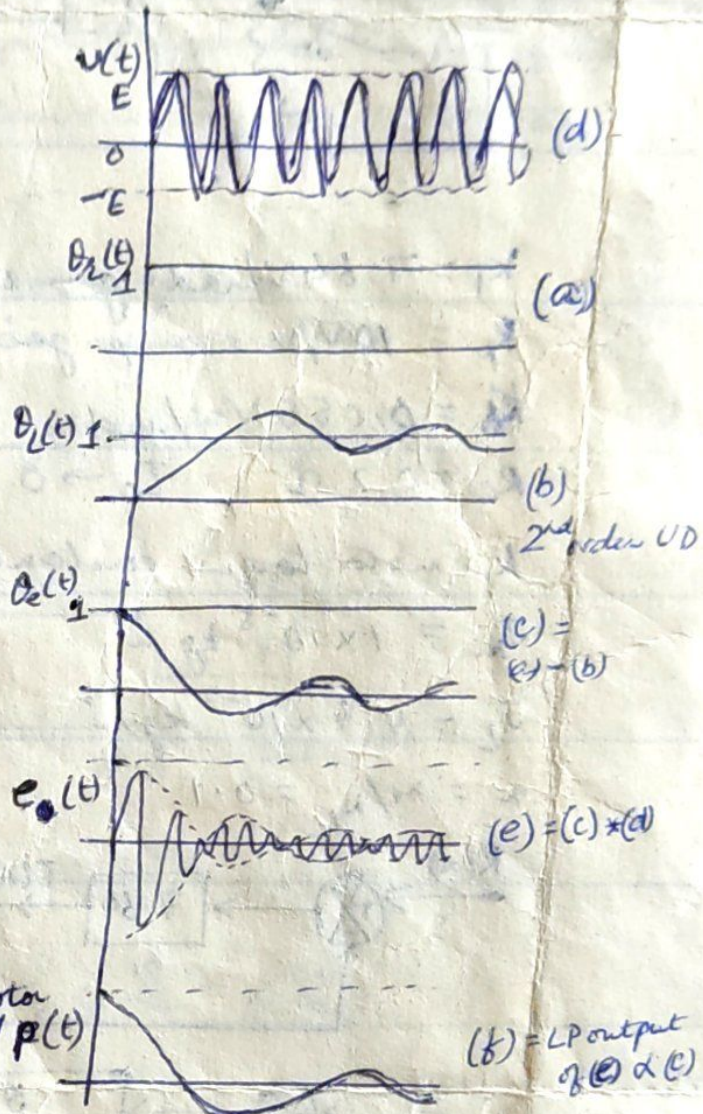 v(t)
E
0
-E
(d)
θr(t)
1
(a)
θL(t) 1
(b)
2nd order UD
θe(t)
1
(c) =
(a) - (b)
e (t)
(e) = (c) * (d)
p(t)
(f) = LP output
of (e) α (c)